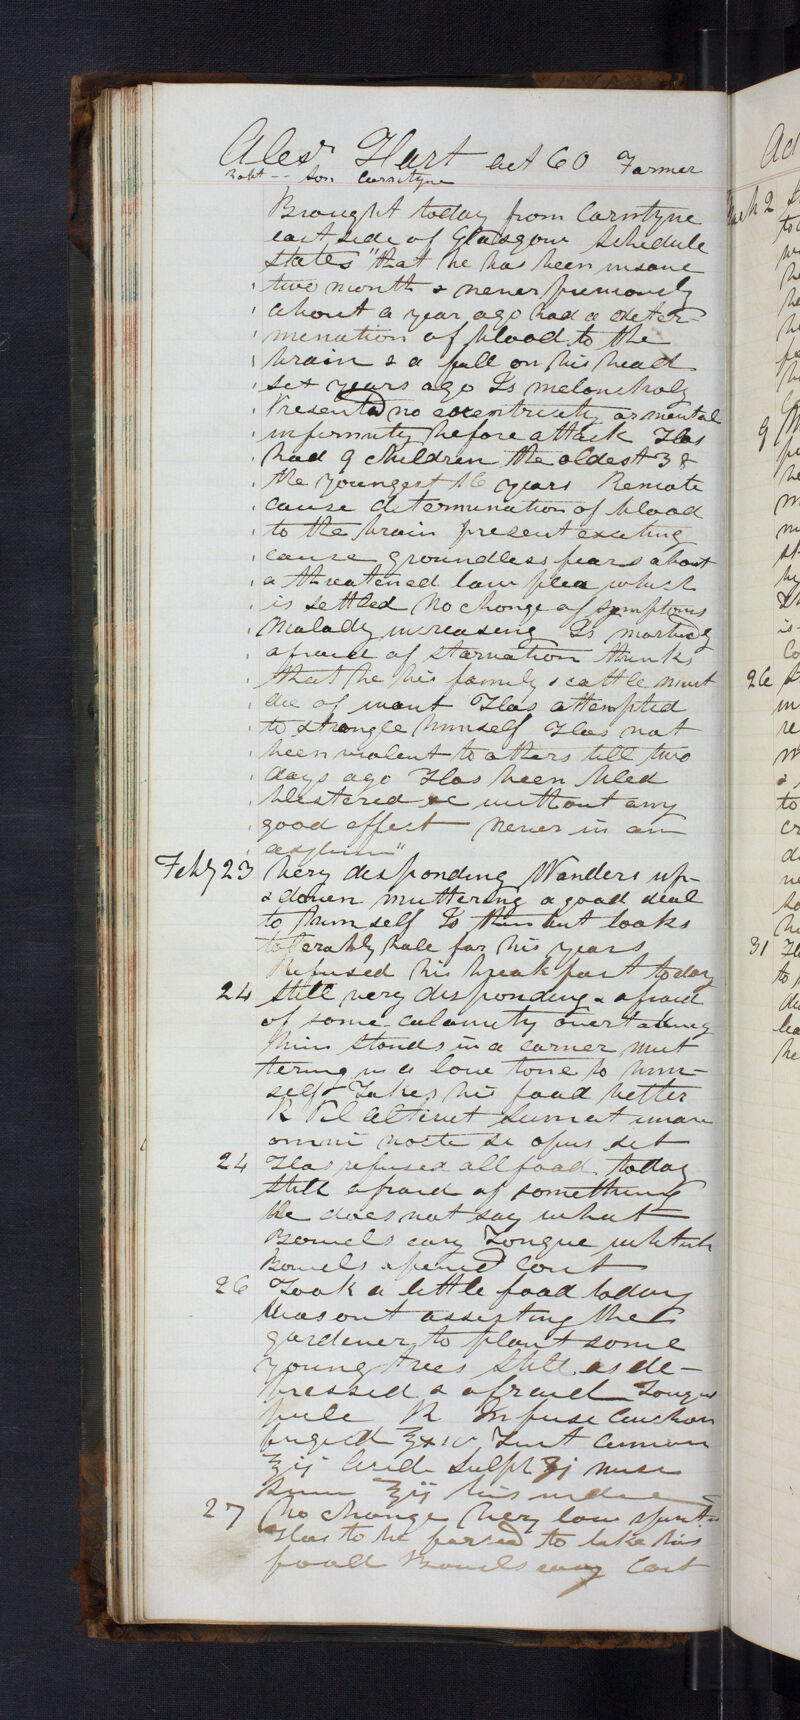 Alexr Hart aet 60 Farmer
Robt -- Son Carntyne
Brought today from Carntyne
east side of Glasgow Schedule
states "that he has been insane
two month & never previously
about a year ago had a deter-
mination of blood to the
brain & a fall on his head
six years ago Is melancholy
Presented no eccentricity or mental
infirmity before attack Has
had 9 children the oldest 38
the youngest 16 years Remote
cause determination of blood
to the brain present exciting
cause groundless fears about
a threatened law plea which
is settled No change of symptoms
Malady increasing Is morbidly
afraid of starvation thinks
that he his family & cattle must
die of want Has attempted
to strangle himself Has not
been violent to others till two
days ago Has been bled
blistered &c without any
good effect never in an
asylum"
Feby 23 Very desponding Wanders up
& down muttering a good deal
to himself Is thin but looks
tolerably hale for his years
Refused his breakfast today
24 Still very desponding & afraid
of some calamity overtaking
him Stands in a corner mut
tering in a low tone to him-
self Takes his food better
R Pil sumat unam
omni nocte si opus sit
24 Has refused all food today
Still afraid of something
He does not say what
Bowels easy Tongue whitish
Bowels opened Cont
26 Took a little food today
Was out assisting the
gardener to plant some
young trees Still as de-
pressed & afraid Tongue
pale R Infus Cinchon
frigid ʒxiv Tinct
ʒij Acid Sulph ʒj misce
ʒij
27 No change Very low spirits
Has to be forced to take his
food Bowels easy Cont
Ad
March 2
9
26
31